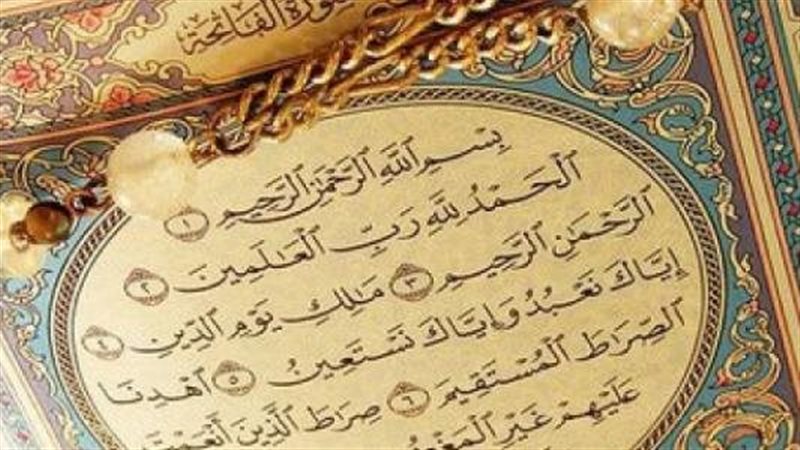 سورة الفاتحة
بِسْمِ ٱللَّهِ ٱلرَّحْمَٰنِ ٱلرَّحِيمِ ١
ٱلْحَمْدُ لِلَّهِ رَبِّ ٱلْعَٰلَمِينَ ٢
ٱلرَّحْمَٰنِ ٱلرَّحِيمِ ٣ مَٰلِكِ يَوْمِ ٱلدِّينِ ٤
إِيَّاكَ نَعْبُدُ وَإِيَّاكَ نَسْتَعِينُ ٥ ٱهْدِنَا
ٱلصِّرَٰطَ ٱلْمُسْتَقِيمَ ٦ صِرَٰطَ ٱلَّذِينَ أَنْعَمْتَ
عَلَيْهِمْ غَيْرِ